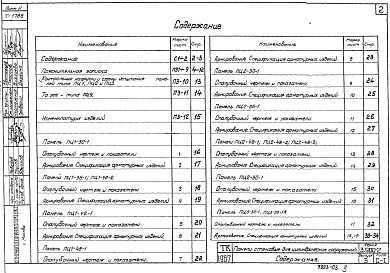 2
Содержание
Наименование Марка лист Стр.
Содержание С1÷2 2-3
Пояснительная записка ПЗ1÷9 4-12
Контрольные нагрузки и схемы испытания панелей типа ПЦ1, ПЦ2 и ПЦ3. ПЗ-10 13
То же - типа ПЦ3. ПЗ-11 14
Номенклатура изделий ПЗ-12 15
Панель ПЦ1-30-1
Опалубочный чертеж и показатели 1 16
Армирование. Спецификация арматурных изделий. 2 17
Опалубочный чертеж и показатели 3 18
Армирование. Спецификация арматурных изделий. 4 19
Панель ПЦ1-42-1
Опалубочный чертеж и показатели 5 20
Армирование. Спецификация арматурных изделий. 6 21
Панель ПЦ1-48-1
Опалубочный чертеж и показатели. 7 22
Наименование Марка лист Стр.
Армирование. Спецификация арматурных изделий 8 23
Панель ПЦ2-30-1
Опалубочный чертеж и показатели 9 24
Армирование. Спецификация арматурных изделий. 10 25
Панель ПЦ2-36-1
Опалубочный чертеж и показатели 11 26
Армирование. Спецификация арматурных изделий 12 27
Опалубочный чертеж и показатели 13 28
Армирование. Спецификация арматурных изделий. 14 29
Опалубочный чертеж и показатели 15 30
Армирование. Спецификация арматурных изделий 16 31
Опалубочный чертеж и показатели 17 32
Армирование. Спецификация арматурных изделий.
ТК
1967
Содержание.
С-1